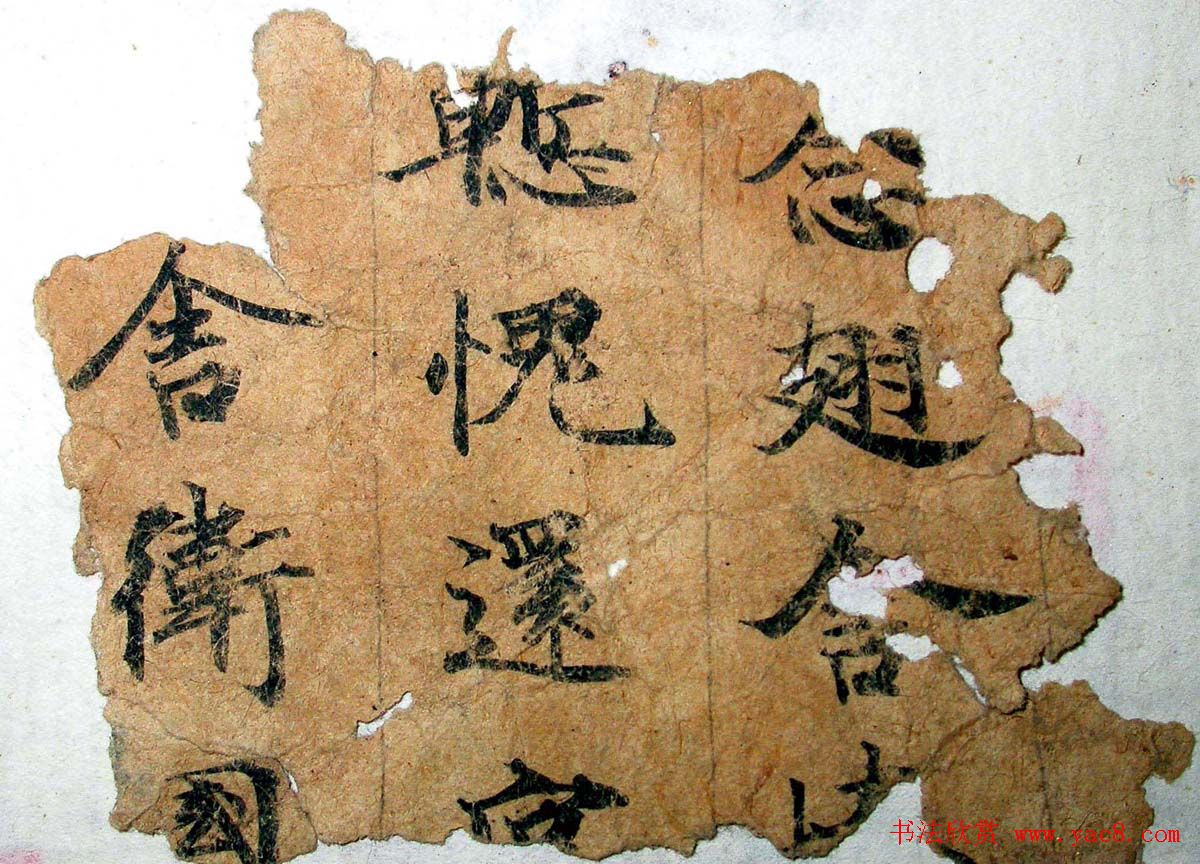 念翅
慙愧還
舍衛國
书法欣赏 www.yac8.com